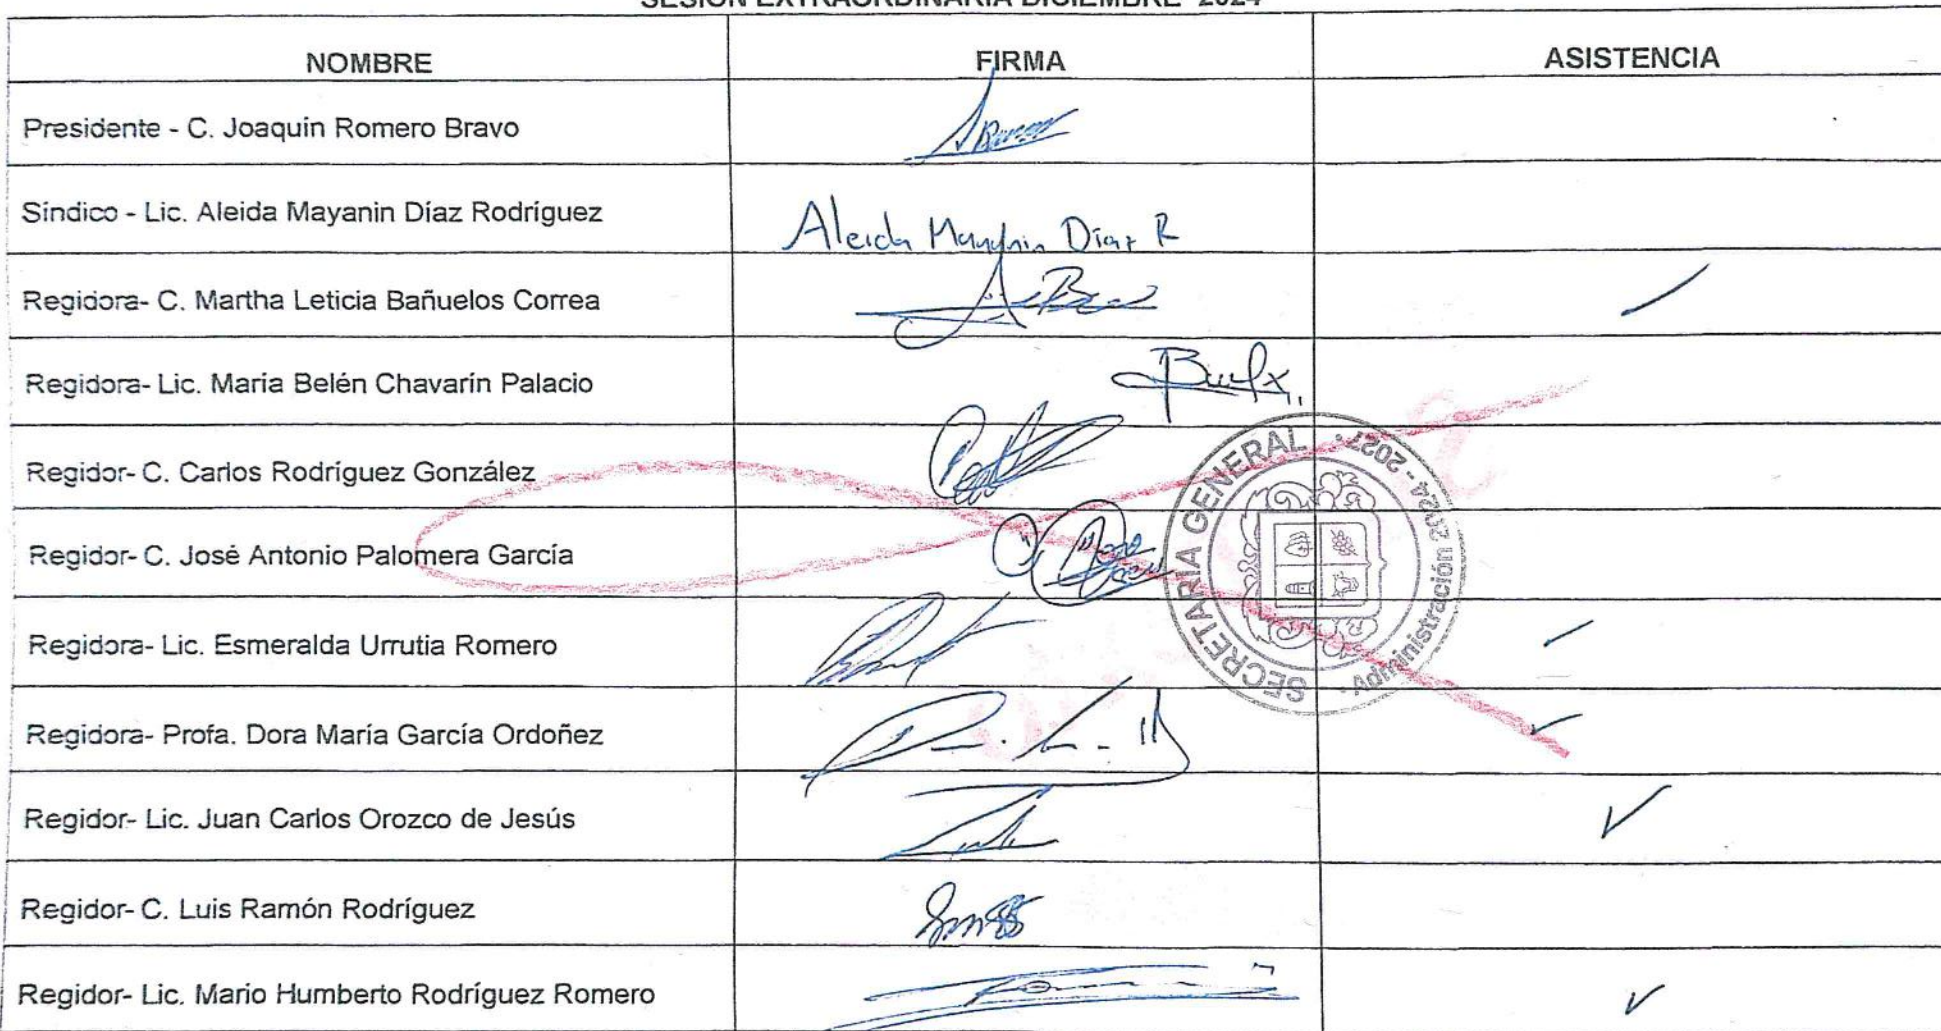 SESIÓN EXTRAORDINARIA DICIEMBRE 2024
NOMBRE FIRMA ASISTENCIA
Presidente - C. Joaquín Romero Bravo
Síndico - Lic. Aleida Mayanin Díaz Rodríguez Aleida Mayanin Díaz R
Regidora- C. Martha Leticia Bañuelos Correa
Regidora- Lic. María Belén Chavarín Palacio
Regidor- C. Carlos Rodríguez González
Regidor- C. José Antonio Palomera García
SECRETARIA GENERAL
Administración 2024 - 2027
Regidora- Lic. Esmeralda Urrutia Romero
Regidora- Profa. Dora María García Ordoñez
Regidor- Lic. Juan Carlos Orozco de Jesús
Regidor- C. Luis Ramón Rodríguez
Regidor- Lic. Mario Humberto Rodríguez Romero